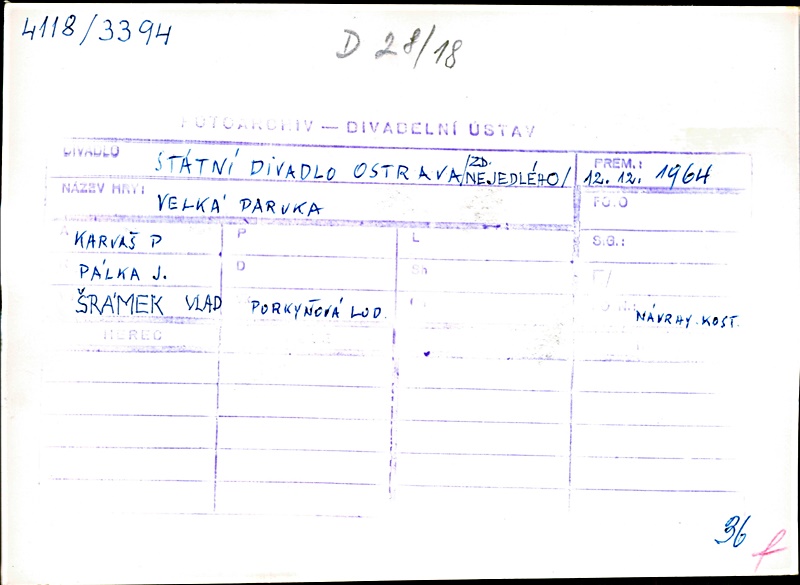 4118/3394
D 28/18
FOTOARCHIV — DIVADELNÍ ÚSTAV
DIVADLO STÁTNÍ DIVADLO OSTRAVA /ZD. NEJEDLÉHO/ PREM.: 12.12. 1964
NÁZEV HRY: VELKÁ PARUKA FOTO
KARVAŠ P P L S.G.:
PÁLKA J. D Sh F/
ŠRÁMEK VLAD PORKYŇOVÁ LUD. NÁVRHY KOST.
HEREC
36